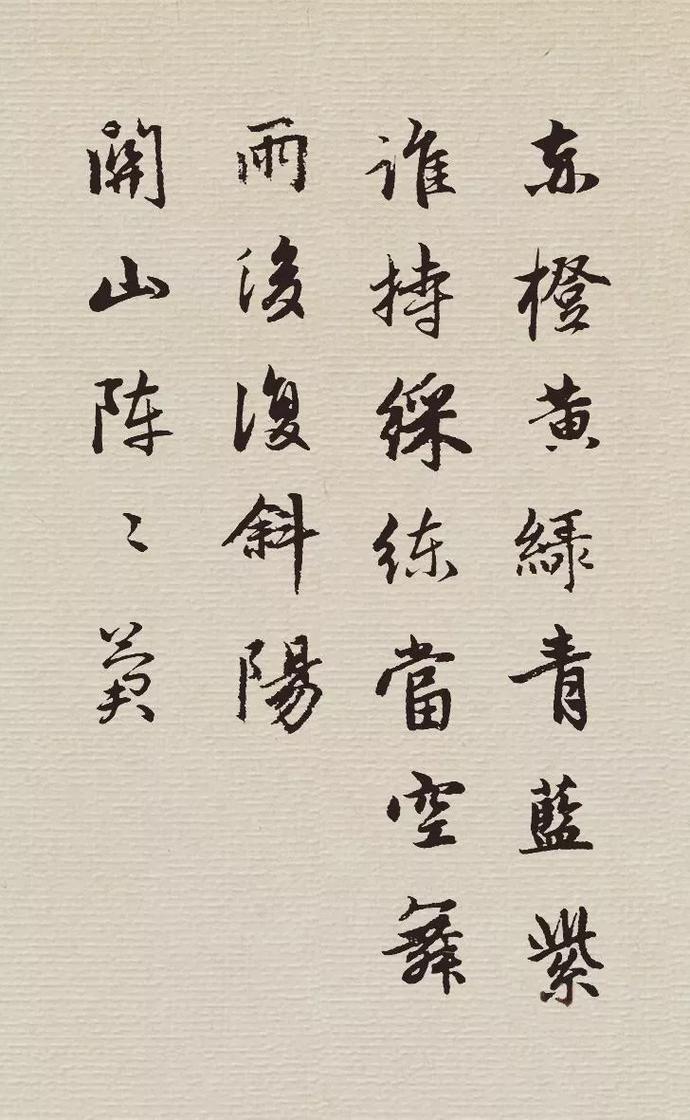 赤橙黄緑青藍紫
谁持綵练當空舞
雨後復斜陽
關山阵〻